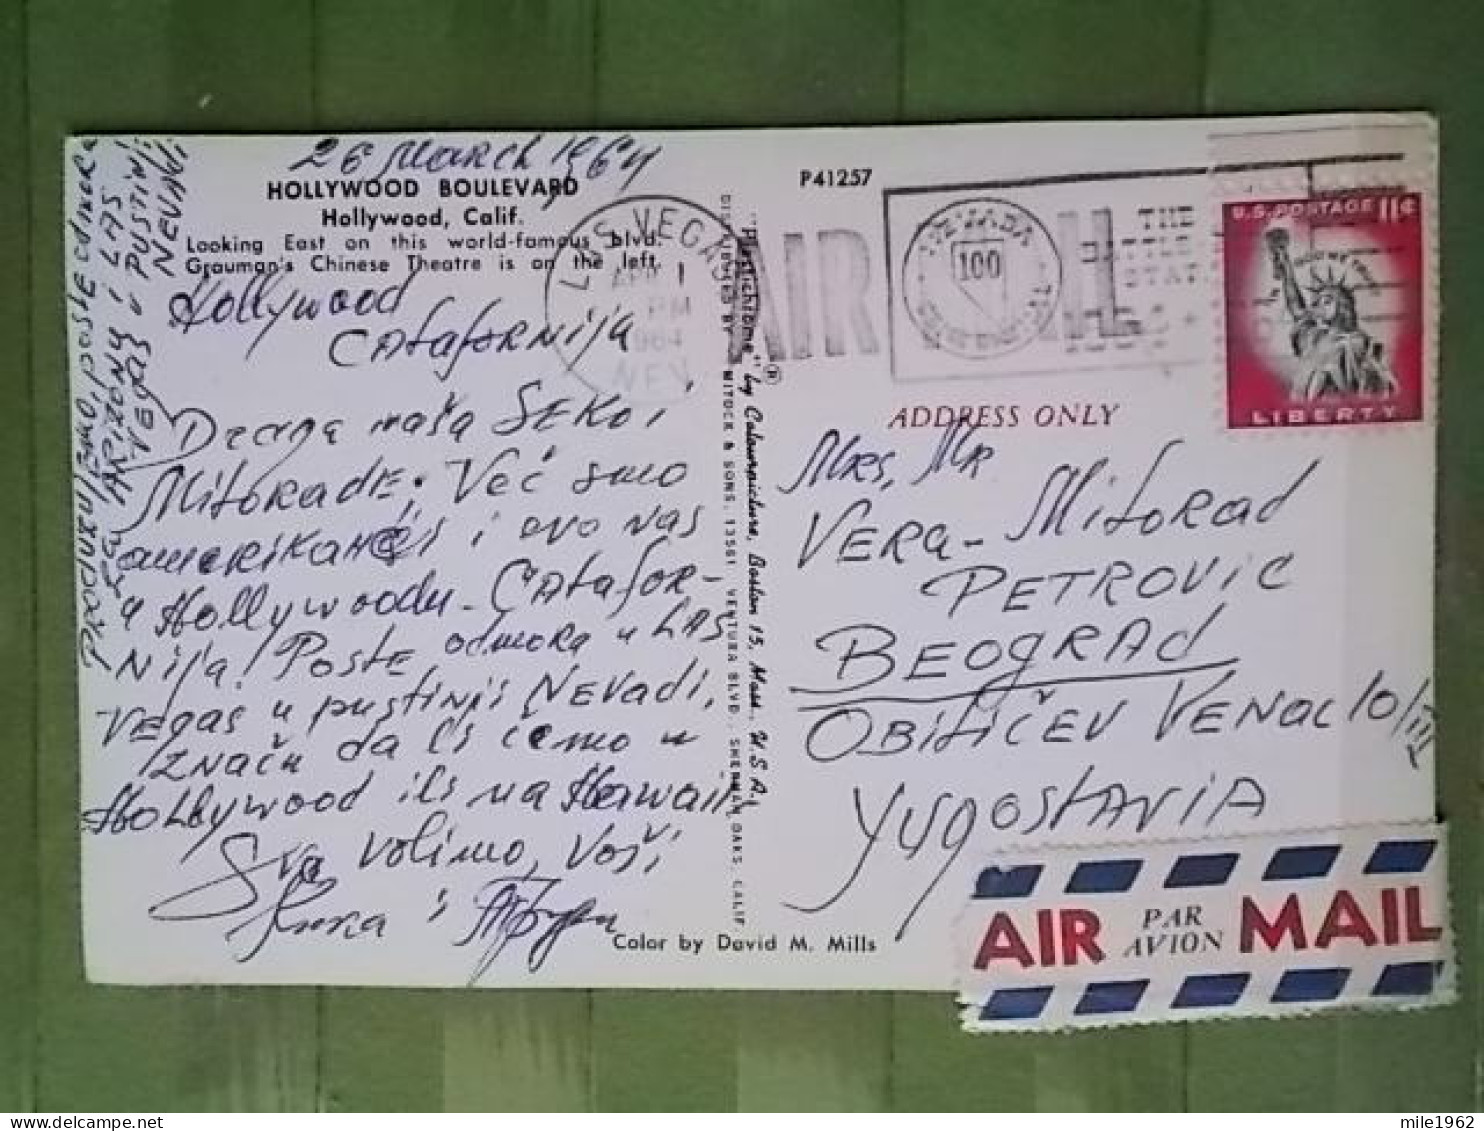 26 March 1964
HOLLYWOOD BOULEVARD
Hollywood, Calif.
Looking East on this world-famous blvd.
Grauman's Chinese Theatre is on the left.
Hollywood
CATafORNija
Draga naša SEKO i
MitoRADE; Već smo
amerikanci i ovo nas
u Hollywoodu - CATafOR-
Nija! POSLE odmora u LAS
VEGAS u pustinji NEVADi,
ZNAČi da li ćemo u
Hollywood ili na Hawaii,
Sva volimo, Vaši
i
PRODUŽUJEMO, posle odmora
ARIZONU i LAS
VEGAS u PUSTINJi
NEVADi
Color by David M. Mills
"Plastichrome"® by Colourpicture, Boston 15, Mass., U.S.A.
DISTRIBUTED BY MITOCK & SONS, 13561 VENTURA BLVD. SHERMAN OAKS, CALIF.
P41257
LAS VEGAS
APR 1
PM
1964
NEV
AIR
NEVADA
100
THE
BATTLE
STATE
U.S. POSTAGE 11¢
IN GOD WE TRUST
LIBERTY
ADDRESS ONLY
MRS, MR
VERA - MitoRAD
PETROVIC
BEOgRAD
OBiliČEV VENAC 10/III
YUgOSLAViA
AIR PAR AVION MAIL
mile1962